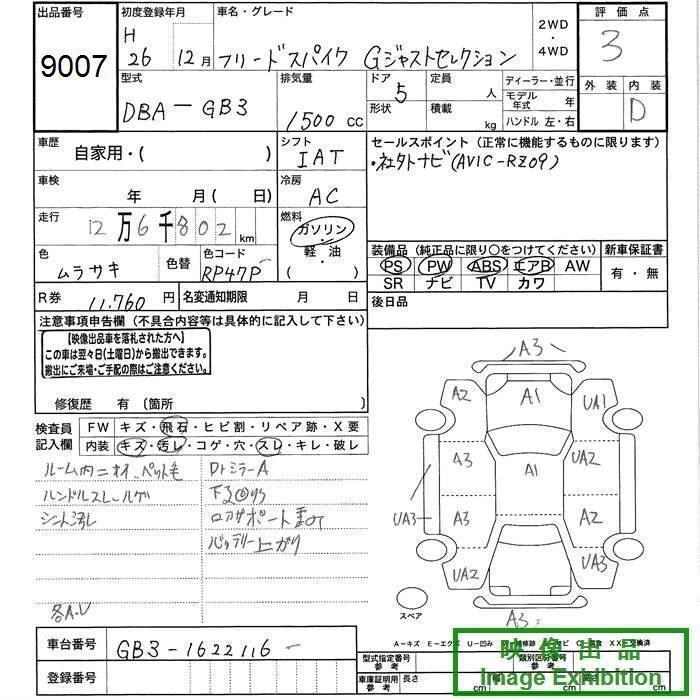 出品番号 初度登録年月 車名・グレード 2WD・4WD 評価点
9007 H 26 12月 フリードスパイク Gジャストセレクション 3
型式 排気量 ドア 定員 ディーラー・並行 外装 内装
DBA-GB3 1500 cc 5 人 モデル年式 年 D
形状 積載 kg ハンドル 左・右
車歴 自家用・( ) シフト IAT セールスポイント(正常に機能するものに限ります)
・社外ナビ(AVIC-RZ09)
車検 年 月( 日) 冷房 AC
走行 12万6千802 km 燃料 ガソリン・軽・油・( )
色 ムラサキ 色替 色コード RP47P 装備品(純正品に限り○をつけてください) 新車保証書
PS PW ABS エアB AW 有・無
SR ナビ TV カワ
R券 11,760円 名変通知期限 月 日 後日品
注意事項申告欄(不具合内容等は具体的に記入して下さい)
【映像出品車を落札された方へ】
この車は翌々日(土曜日)から搬出できます。
搬出にご来場・ご手配の際はご注意ください。
修復歴 有〔箇所 〕
検査員記入欄 FW キズ・飛石・ヒビ割・リペア跡・X要
内装 キズ・汚レ・コゲ・穴・スレ・キレ・破レ
ルーム内ニオイ、ペット毛 DrミラーA
ハンドルスレ・ハゲ
シート汚レ
バッテリー上がり
各A.U
A3
A2 A1 UA1
A3 A1 UA2
UA3 A3 A2
UA2 UA3
A3
スペア
A-キズ E-エクボ U-凹み
車台番号 GB3-1622116
登録番号
型式指定番号 参考 類別区分番号
車庫証明用 参考 長さ cm 幅 cm cm
映像出品
Image Exhibition